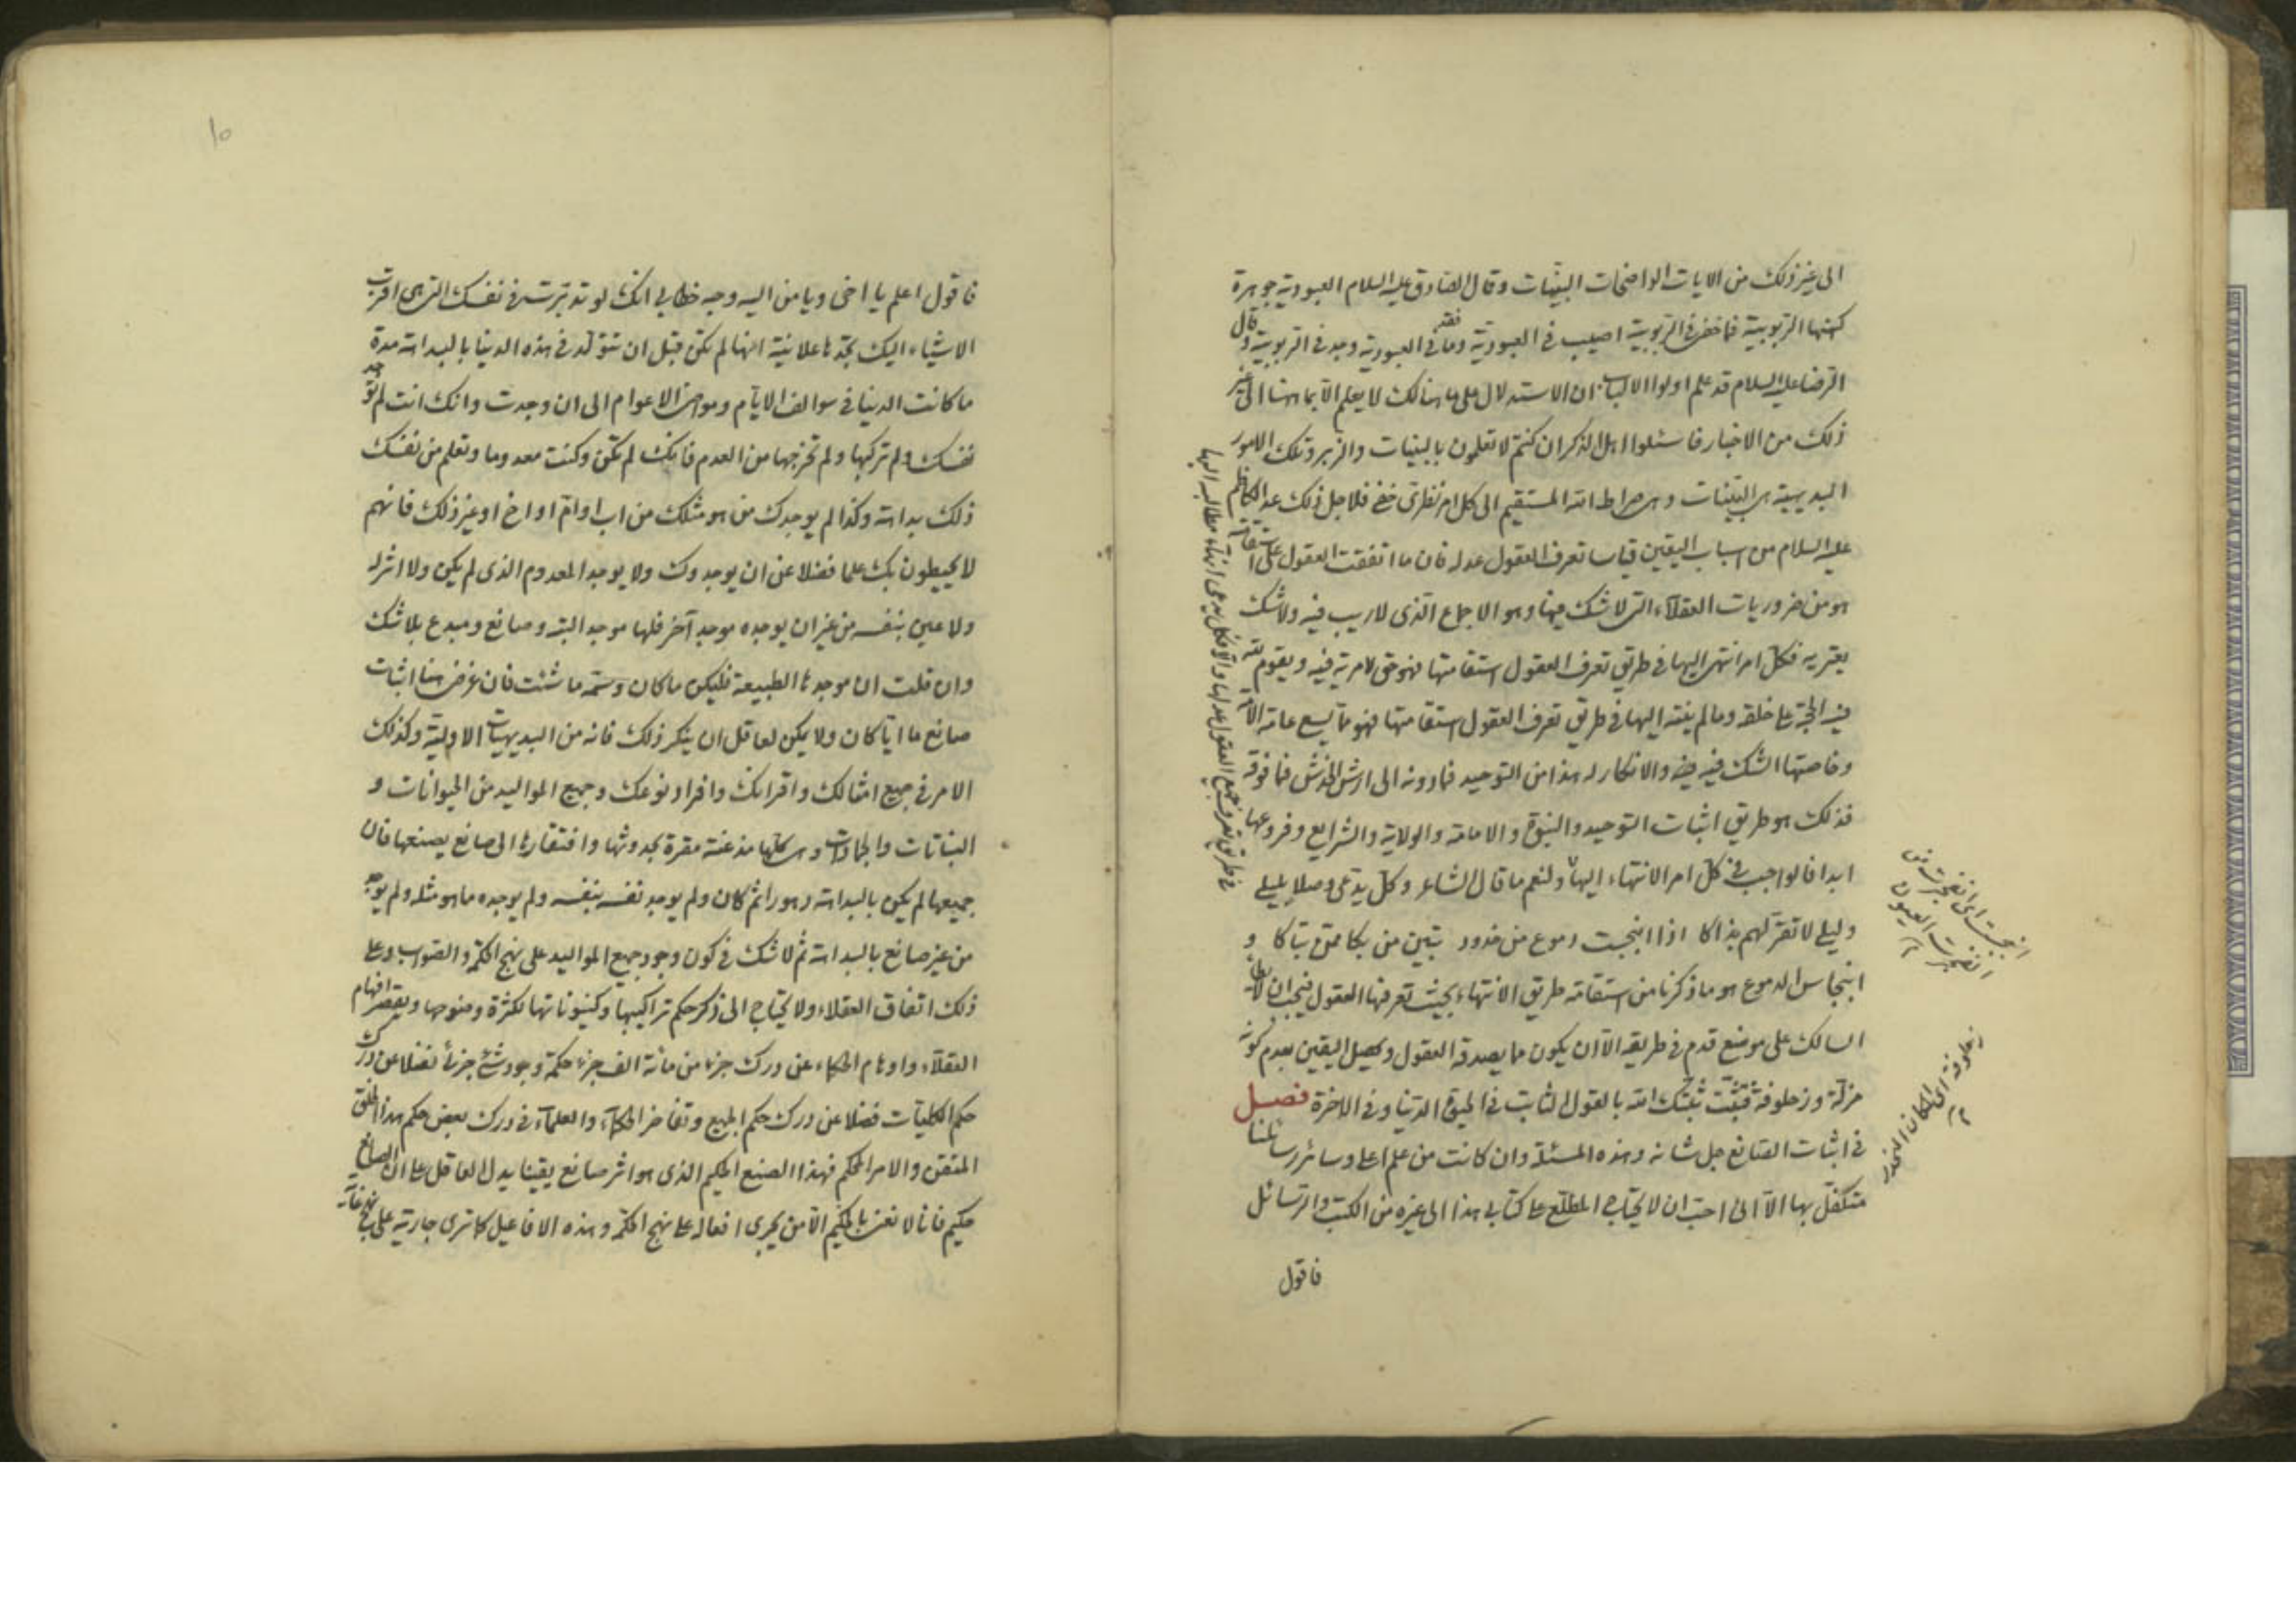 الى غير ذلك من الايات الواضحات البينات وقال الصادق عليه السلام العبودية جوهرة
كنهها الربوبية فما خفى فى الربوبية اصيب فى العبودية وما فقد فى العبودية وجد فى الربوبية وقال
الرضا عليه السلام قد علم اولوا الالباب ان الاستدلال على ما هنالك لا يعلم الا بما هيهنا الى غير
ذلك من الاخبار فاسئلوا اهل الذكر ان كنتم لا تعلمون بالبينات والزبر وتلك الامور
البديهية هى البينات وهى صراط الله المستقيم الى كل امر نظرى خفى فلاجل ذلك عد الكاظم
عليه السلام من اسباب اليقين قياسا تعرف العقول عدله فان ما اتفقت العقول على استقامته
هو من ضروريات العقلاء التى لا شك فيها وهو الاجماع الذى لا ريب فيه ولا شك
يعتريه فكل امر انتهى اليها فى طريق تعرف العقول استقامتها فهو حق لا مرية فيه ويقوم لله
فيه الحجة على خلقه وما لم ينته اليها فى طريق تعرف العقول استقامتها فهو مما يسع عامة الامة
وخاصتها الشك فيه والانكار له هذا من التوحيد فما دونه الى ارش الخدش فما فوقه
فذلك هو طريق اثبات التوحيد والنبوة والامامة والولاية والشرايع وفروعها
ابدا فالواجب فى كل امر الانتهاء اليها ولنعم ما قال الشاعر وكل يدعى وصلا بليلى
وليلى لا تقر لهم بذاكا اذا انبجست دموع من خدود تبين من بكى ممن تباكا و
انبجاس الدموع هو ما ذكرنا من استقامة طريق الانتهاء بحيث تعرفها العقول فيجب ان لا يطأ
السالك على موضع قدم فى طريقه الا ان يكون مما يصدقه العقول ويحصل اليقين بعدم كونه
مزلة وزحلوفة فتثبت ثبتك الله بالقول الثابت فى الحيوة الدنيا وفى الاخرة فصل
فى اثبات الصانع جل شانه وهذه المسئلة وان كانت من علم اعلى وسائر رسائلنا
متكفل بها الا انى احب ان لا يحتاج المطلع على كتابى هذا الى غيره من الكتب والرسائل
فاقول
فى طريق تعرف جميع العقول عدلها والا فكل يدعى انتهاء مطالبه اليها
انبجست اى انفجرت من
انفجرت العيون
زحلوفة اى المكان المنحدر
١٠
فاقول اعلم يا اخى ويا من اليه وجه خطابى انك لو تدبرت فى نفسك التى هى اقرب
الاشياء اليك تجدها علانية انها لم تكن قبل ان تتولد فى هذه الدنيا بالبداهة مدة
ما كانت الدنيا فى سوالف الايام ومواضى الاعوام الى ان وجدت وانك انت لم توجد
نفسك ولم تركبها ولم تخرجها من العدم فانك لم تكن وكنت معدوما وتعلم من نفسك
ذلك بداهة وكذا لم يوجدك من هو مثلك من اب او ام او اخ او غير ذلك فانهم
لا يحيطون بك علما فضلا عن ان يوجدوك ولا يوجد المعدوم الذى لم يكن ولا اثر له
ولا عين بنفسه من غير ان يوجده موجد آخر فلها موجد البتة وصانع ومبدع بلا شك
وان قلت ان موجدها الطبيعة فليكن ما كان وسمه ما شئت فان غرضى هنا اثبات
صانع ما ايا كان ولا يمكن لعاقل ان ينكر ذلك فانه من البديهيات الاولية وكذلك
الامر فى جميع امثالك واقرانك وافراد نوعك وجميع المواليد من الحيوانات و
النباتات والجمادات وهى كلها مذعنة مقرة بحدوثها وافتقارها الى صانع يصنعها فان
جميعها لم يكن بالبداهة دهورا ثم كان ولم يوجد نفسه بنفسه ولم يوجده ما هو مثله ولم يوجد
من غير صانع بالبداهة ثم لا شك فى كون وجود جميع المواليد على نهج الحكمة والصواب وعلى
ذلك اتفاق العقلاء ولا يحتاج الى ذكر حكم تراكيبها وكينوناتها لكثرة وضوحها ويقصر افهام
العقلاء واوهام الحكماء عن درك جزء من مائة الف جزء حكمة وجود شىء جزئى فضلا عن درك
حكم الكليات فضلا عن درك حكم الجميع وتفاخر الحكماء والعلماء فى درك بعض حكم هذا الخلق
المتقن والامر المحكم فهذا الصنع الحكيم الذى هو اثر صانع يقينا يدل العاقل على ان الصانع
حكيم فانا لا نعنى بالحكيم الا من يجرى افعاله على نهج الحكمة وهذه الافاعيل كما ترى جارية على نهج